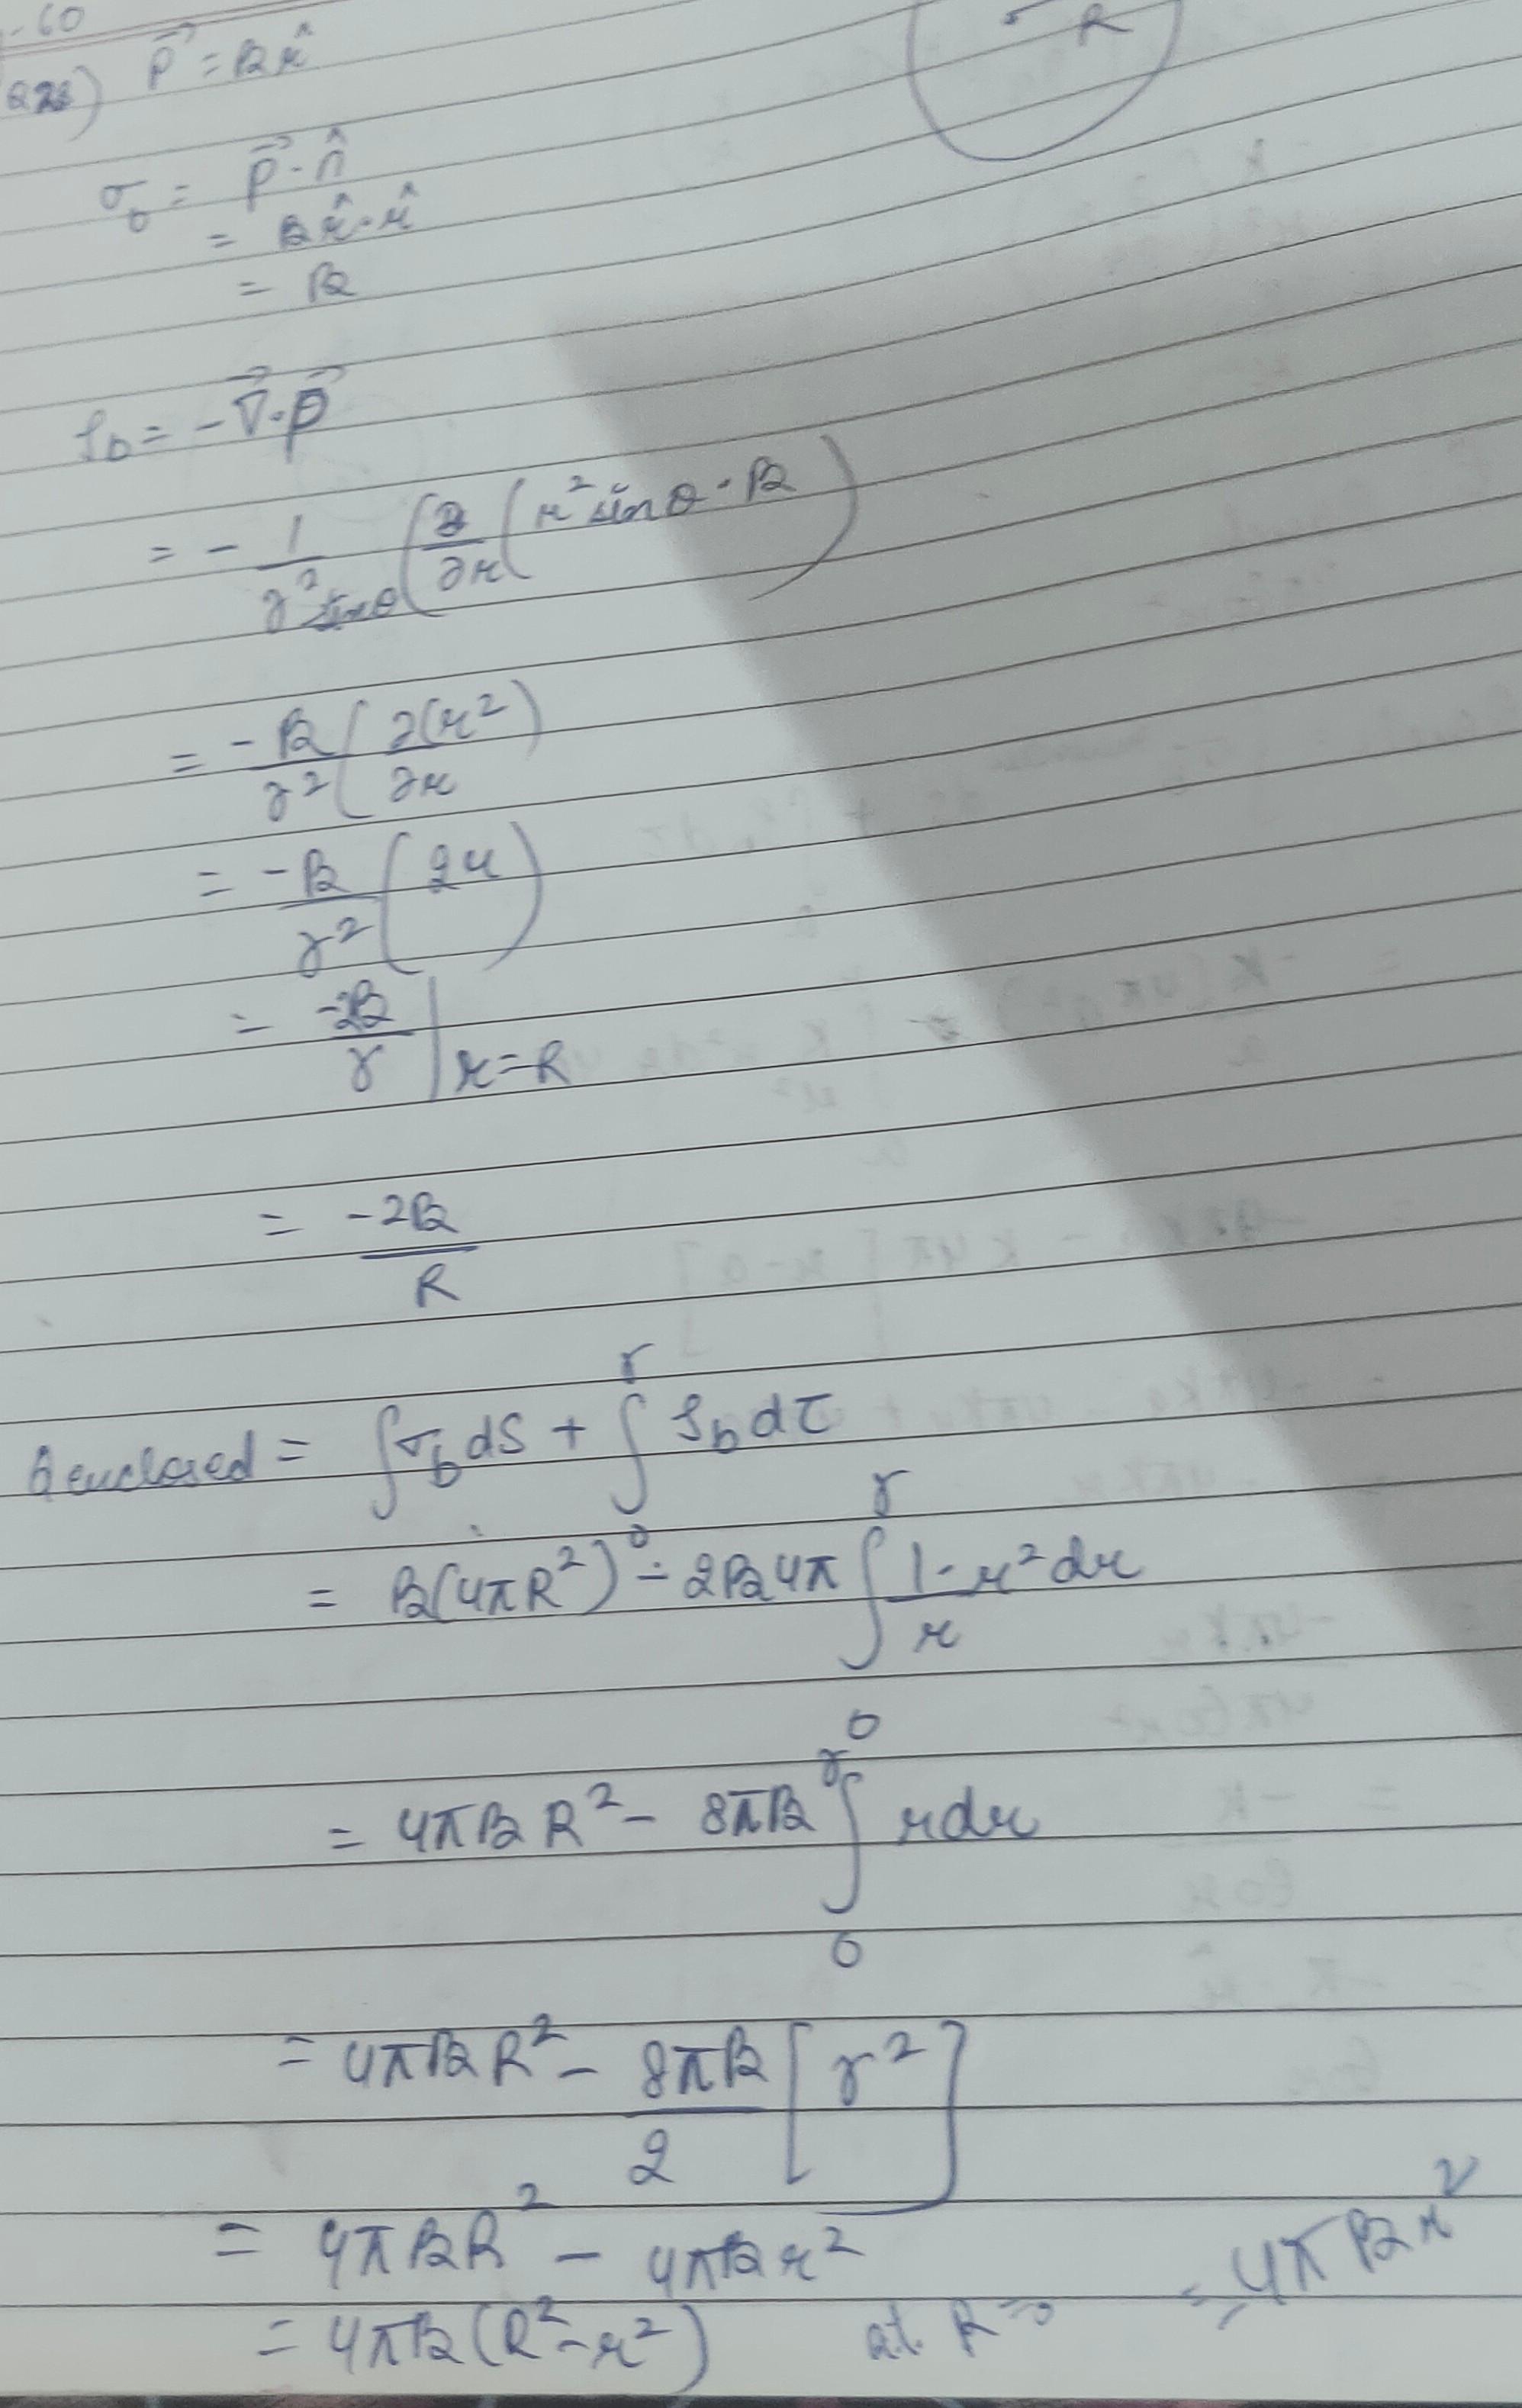 -60
Q28) P⃗ = βr̂
R
σ_b = P⃗·n̂
= βr̂·r̂
= β
ρ_b = -∇⃗·P⃗
= -1/(r² sinθ) (∂/∂r (r² sinθ·β)
= -β/r² (∂(r²)/∂r
= -β/r² (2r)
= -2β/r |r=R
= -2β/R
Qenclosed = ∫σ_b dS + ∫₀^r ρ_b dτ
= β(4πR²) - 2β4π ∫₀^r 1/r · r² dr
= 4πβR² - 8πβ ∫₀^r r dr
= 4πβR² - 8πβ/2 [r²]
= 4πβR² - 4πβr²
= 4πβ(R²-r²) at R=0 = -4πβr²